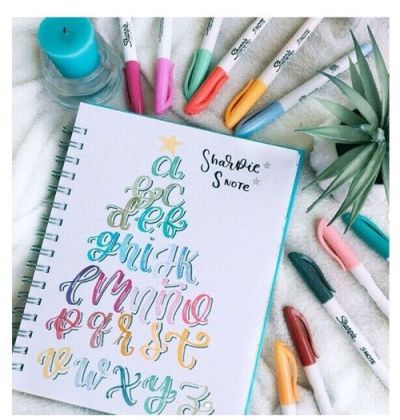 Sharpie
S NOTE
a
bc
def
ghijk
lmnño
pqrst
vwxyz
Sharpie S·NOTE
Sharpie S·NOTE
Sharpie S·NOTE
Sharpie